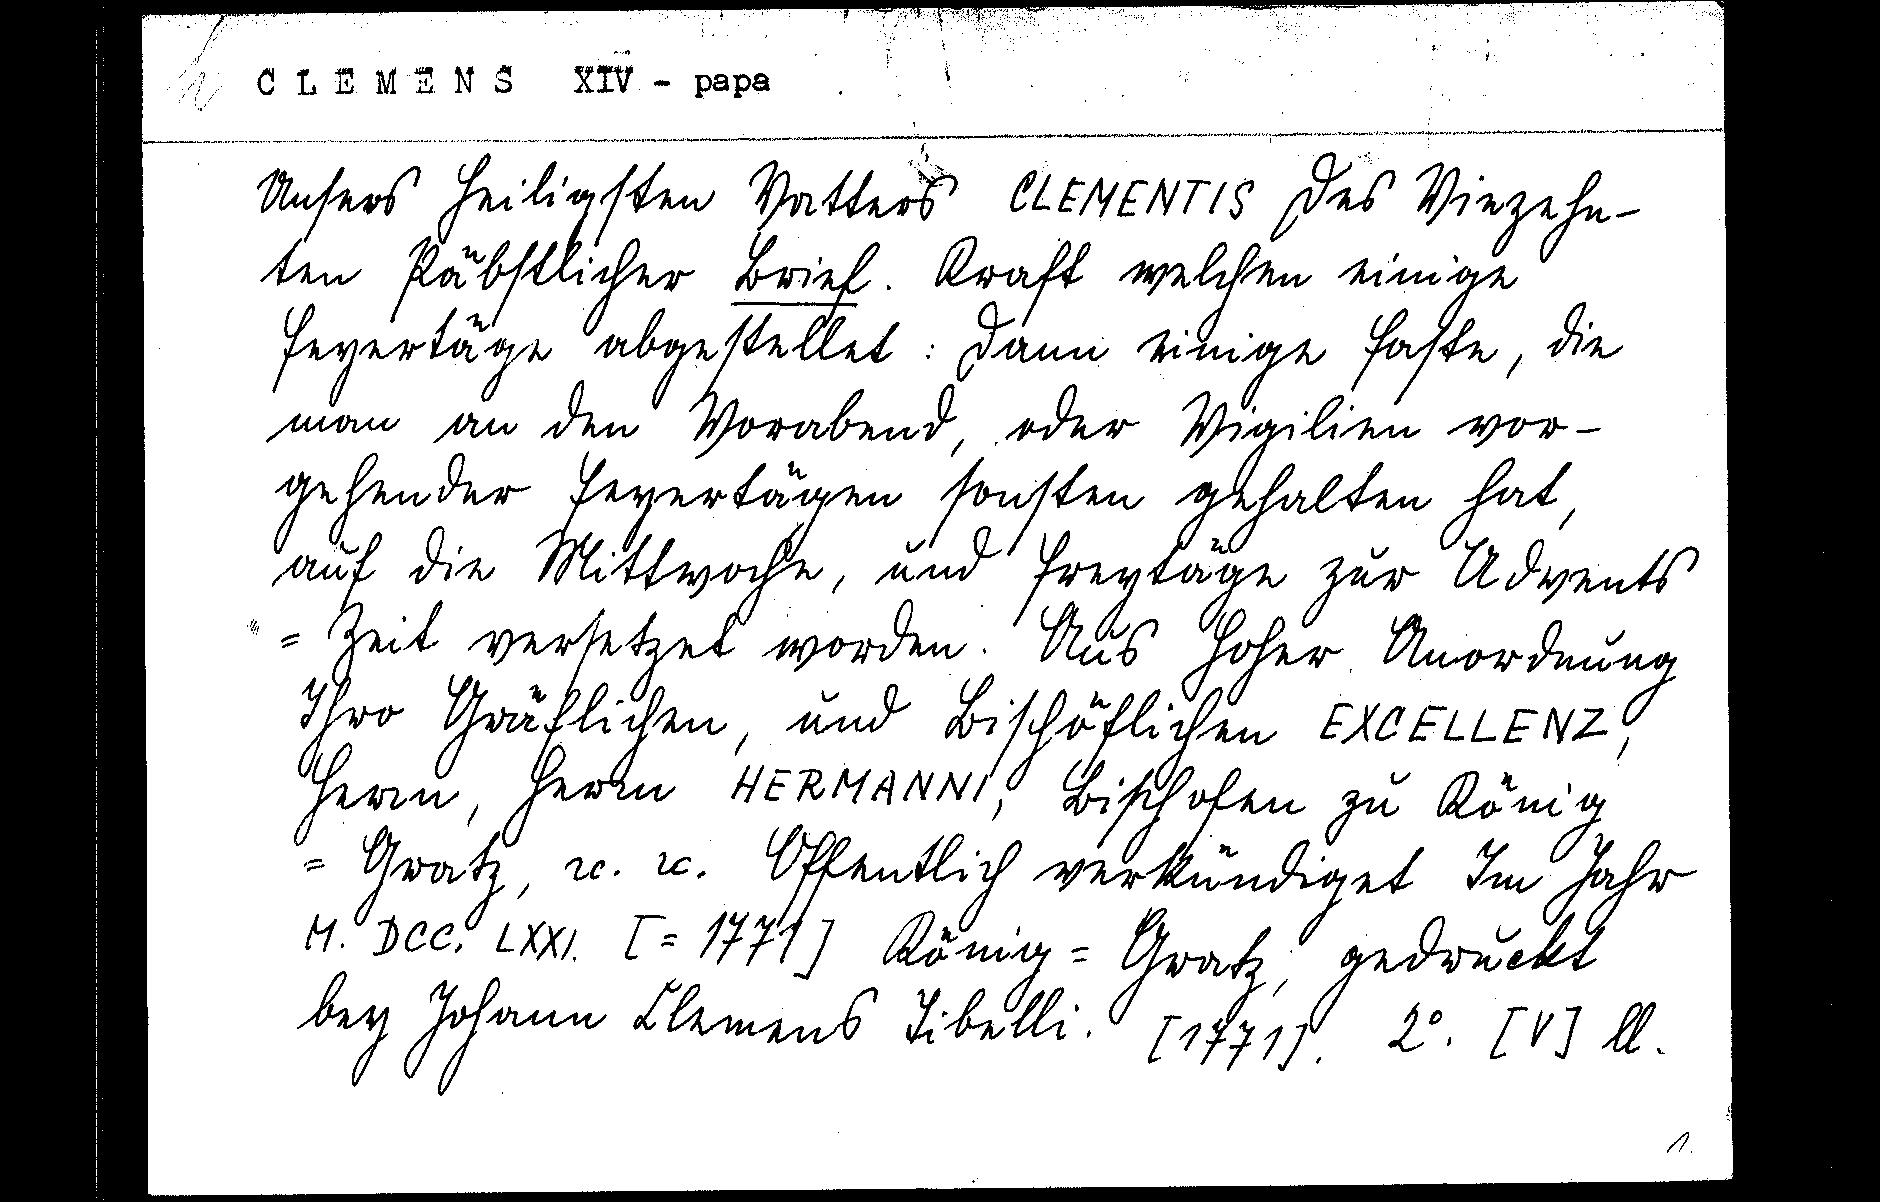 CLEMENS XIV - papa
Unsers Heiligsten Vatters CLEMENTIS des Viezehn-
ten Päbstlicher Brief. Kraft welchen einige
Feyertäge abgestellet : dann einige Faste, die
man an den Vorabend, oder Vigilien vor-
gehender Feyertägen sonsten gehalten hat,
auf die Mittwoche, und Freytäge zur Advents
= Zeit versetzet worden. Aus Hoher Anordnung
Ihro Gräflichen, und Bischöflichen EXCELLENZ,
Herrn, Herrn HERMANNI, Bischofen zu König
= Gratz, ꝛc. ꝛc. Offentlich verkündiget Im Jahr
M. DCC. LXXI. [= 1771] König = Gratz, gedruckt
bey Johann Clemens Tibelli. [1771]. 2°. [V] ll.
1.